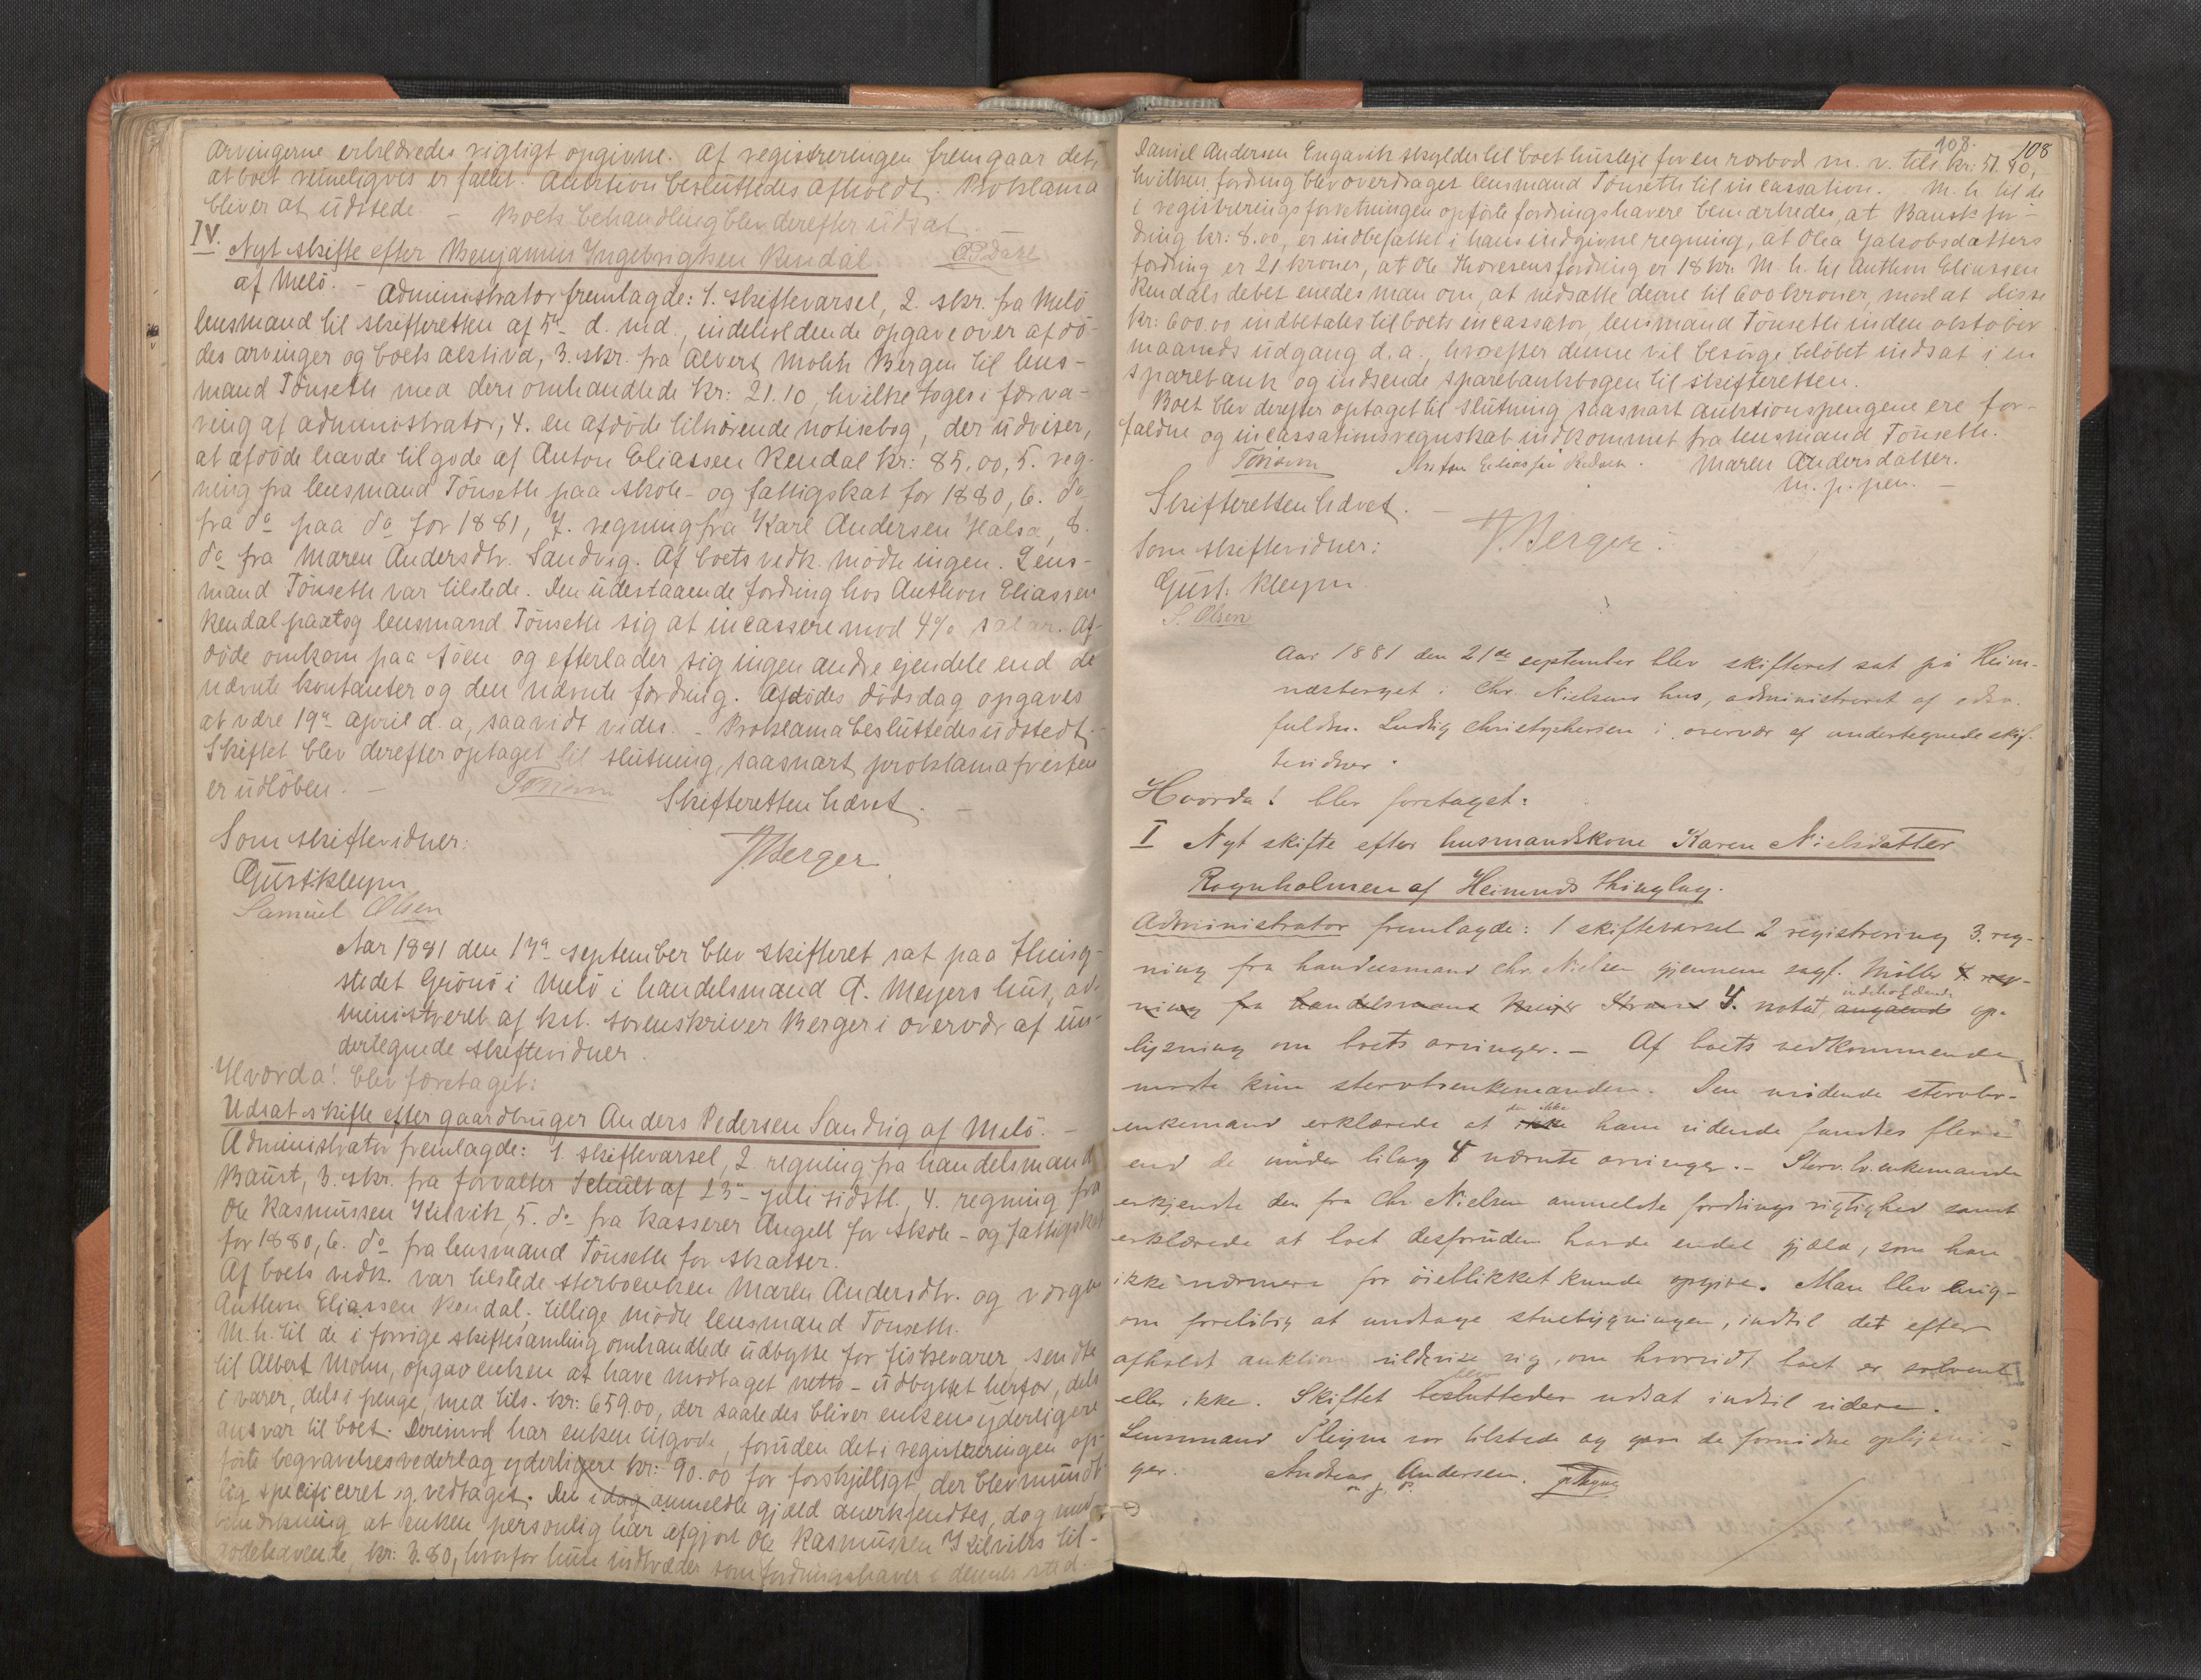 arvingerne erklæredes rigtigt opgivne. Af registreringen fremgaar det,
at boet rimeligvis er fallit. Auktion besluttedes afholdt. Proklama
bliver at udstede – Boets behandling blev derefter udsat.
IV. Nyt skifte efter Benjamin Ingebrigtsen Kendal
af Melö. – Administrator fremlagde: 1. skiftevarsel, 2. skr. fra Melö
lensmand til skifteretten af 5te d. md., indeholdende opgave over afdö-
des arvinger og boets aktiva, 3. skr. fra Alvert Mohn Bergen til lens-
mand Tönseth med deri omhandlede kr: 21.10, hvilke toges i forva-
ring af administrator, 4. en afdöde tilhörende notisebog, der udviser,
at afdöde havde tilgode af Anton Eliassen Kendal kr: 85.00, 5. reg-
ning fra lensmand Tönseth paa skole- og fattigskat for 1880, 6. do
fra do paa do for 1881, 7. regning fra Karl Andersen Halsa, 8.
do fra Maren Andersdtr. Sandvig. Af boets vedk. mödte ingen. Lens-
mand Tönseth var tilstede. Den udestaaende fordring hos Anthon Eliassen
Kendal paatog lensmand Tönseth sig at incassere mod 4% salær. Af-
döde omkom paa söen og efterlader sig ingen andre ejendele end de
nævnte kontanter og den nævnte fordring. Afdödes dödsdag opgaves
at være 19de april d. a., saavidt vides. – Proklama besluttedes udstedt.
Skiftet blev derefter optaget til slutning, saasnart proklamafristen
er udlöben. – Skifteretten hævet. –
Som skiftevidner: J Berger
Gust. Kleyn
Samuel Olsen
Aar 1881 den 17de september blev skifteret sat paa thing-
stedet Grönö i Melö i handelsmand A. Meyers hus, ad-
ministreret af kst. sorenskriver Berger i overvær af un-
dertegnede skiftevidner.
Hvorda! blev foretaget:
Udsat skifte efter gaardbruger Anders Pedersen Sandvig af Melö. –
Administrator fremlagde: 1. skiftevarsel, 2 regning fra handelsmand
Baust, 3. skr. fra forvalter Schult af 23de juli sidstl., 4. regning fra
Ole Rasmussen Kilvik, 5. do fra kasserer Angell for skole- og fattigskat
for 1880, 6. do fra lensmand Tönseth for skatter.
Af boets vedk. var tilstede sterboenken Maren Andersdtr. og værge
Anthon Eliassen Kendal; tillige mödte lensmand Tönseth.
M. h. til de i forrige skiftesamling omhandlede udbytte for fiskevarer, sendte
til Albert Mohn, opgav enken at have modtaget netto-udbyttet herfor, dels
i varer, dels i penge, med tils. kr: 659.00, der saaledes bliver enkens yderligere
ansvar til boet. Derimod har enken tilgode, foruden det i registreringen op-
förte begravelsesvederlag yderligere kr: 90.00 for forskjelligt, der blev mundt-
lig specificeret og vedtaget. Den i dag anmeldte gjæld anerkjendtes, dog med
bemærkning at enken personlig har afgjort Ole Rasmussen Kilviks til-
godehavende, kr: 3.80, hvorfor hun indtræder som fordringshaver i dennes sted.
108. 108
Daniel Andersen Engavik skylder til boet husleje for en rorbod m. v. tils. kr: 51.40,
hvilken fordring blev overdraget lensmand Tönseth til incassation. M. h. til de
i registreringsforretningen opförte fordringshavere bemærkedes, at Bausts for-
dring kr: 8.00, er indbefattet i hans indgivne regning, at Olea Jakobsdatters
fordring er 21 kroner, at Ole Thoresens fordring er 18 kr. M. h. til Anthon Eliassen
Kendals debet enedes man om, at nedsætte denne til 600 kroner, mod at disse
kr: 600.00 indbetales til boets incassator, lensmand Tönseth inden oktober
maaneds udgang d. a., hvorefter denne vil besörge belöbet indsat i en
sparebank og indsende sparebankbogen til skifteretten.
Boet blev derefter optaget til slutning, saasnart auktionspengene ere for-
faldne og incassationsregnskab indkommet fra lensmand Tönseth.
Anton Eliassen Maren Andersdatter.
m. p. pen. –
Skifteretten hævet. –
Som skiftevidner: J Berger.
Gust. Kleyn.
S. Olsen
Aar 1881 den 21de september blev skifteret sat på Heim-
næsberget i Chr. Nielsens hus, administreret af edsv.
fuldm. Ludvig Christophersen i overvær af undertegnede skif-
tevidner.
Hvorda! blev foretaget:
I Nyt skifte efter husmandskone Karen Nielsdatter
Rognholmen af Heimnds thinglag.
Administrator fremlagde: 1 skiftevarsel 2 registrering 3. reg-
ning fra handelsmand Chr. Nielsen gjennem sagf. Möller 4 reg-
ning fra handelsmand 4. notat indeholdende angaaende op-
lysning om boets arvinger. – Af boets vedkommende
mødte kun stervboenkemanden. Den mødende stervbo-
enkemand erklærede at der ikke ikke ham vidende fandtes flere
end de under bilag 4 nævnte arvinger. – Stervb.enkemanden
erkjendte den fra Chr Nielsen anmeldte fordrings rigtighed samt
erklærede at boet desforuden havde endel gjæld, som han
ikke nærmere for öieblikket kunde opgive. Man blev enig
om forelöbig at undtage stuebygningen, indtil det efter
afholdt auktion vil vise sig, om hvorvidt boet er solvent
eller ikke. Skiftet blev besluttedes udsat indtil videre.
Lensmand Pleym var tilstede og gav de fornödne oplysnin-
ger. Andreas Andersen.